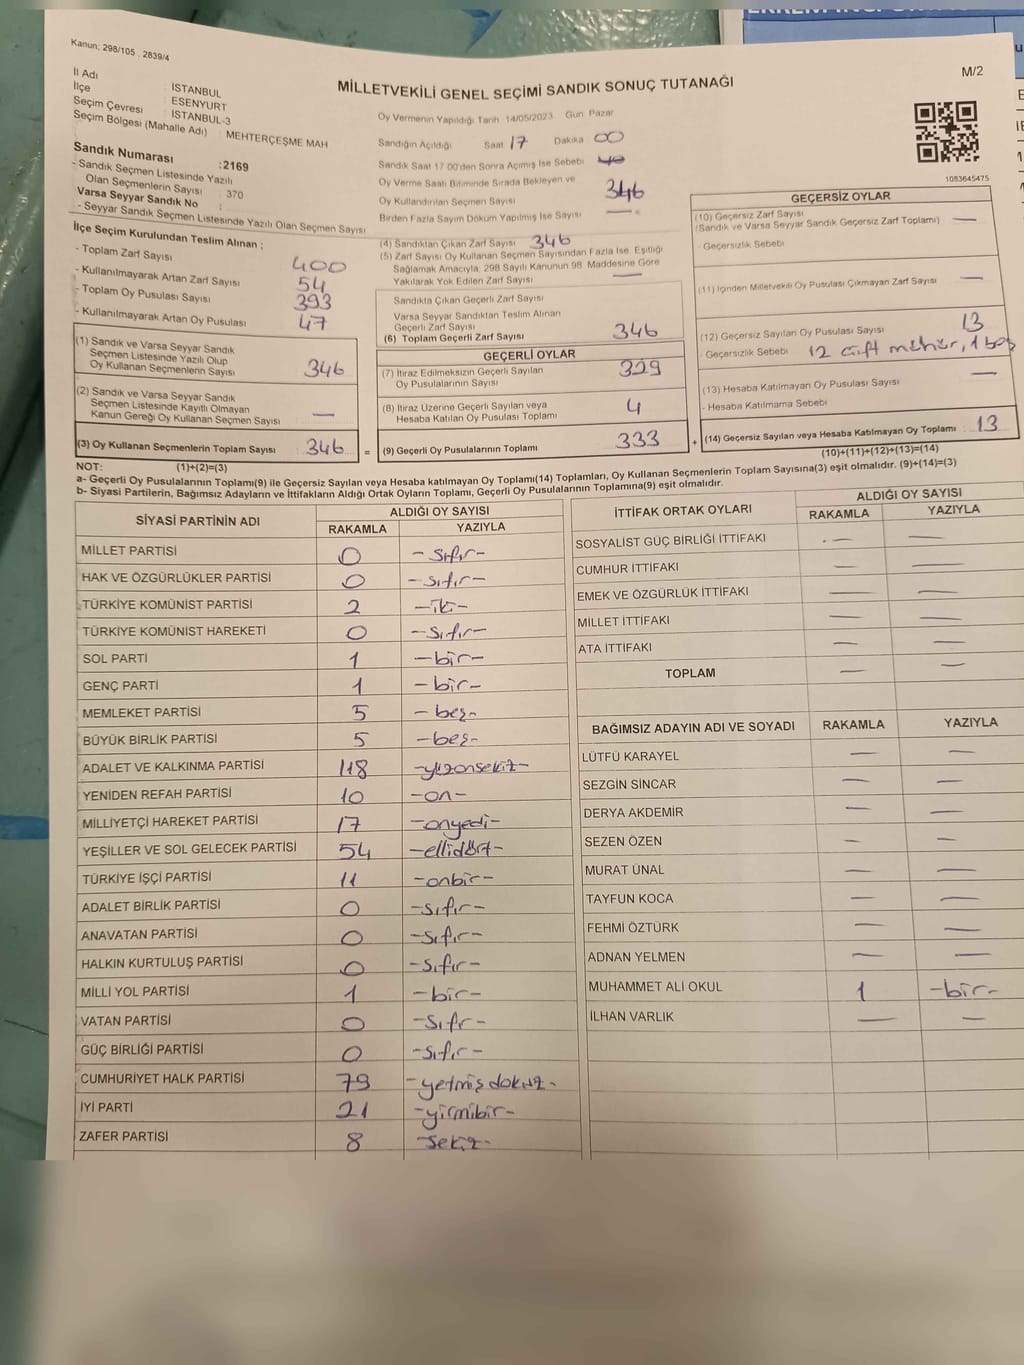 Kanun: 298/105 , 2839/4
MİLLETVEKİLİ GENEL SEÇİMİ SANDIK SONUÇ TUTANAĞI
M/2
İl Adı : İSTANBUL
İlçe : ESENYURT
Seçim Çevresi : İSTANBUL-3
Seçim Bölgesi (Mahalle Adı) : MEHTERÇEŞME MAH
Sandık Numarası :2169
- Sandık Seçmen Listesinde Yazılı
Olan Seçmenlerin Sayısı : 370
Varsa Seyyar Sandık No :
- Seyyar Sandık Seçmen Listesinde Yazılı Olan Seçmen Sayısı
Oy Vermenin Yapıldığı Tarih 14/05/2023 Gün Pazar
Sandığın Açıldığı Saat 17 Dakika 00
Sandık Saat 17:00'den Sonra Açımış İse Sebebi
Oy Verme Saati Bitiminde Sırada Bekleyen ve
Oy Kullandırılan Seçmen Sayısı 346
Birden Fazla Sayım Döküm Yapılmış İse Sayısı —
1083645475
İlçe Seçim Kurulundan Teslim Alınan ;
- Toplam Zarf Sayısı 400
- Kullanılmayarak Artan Zarf Sayısı 54
- Toplam Oy Pusulası Sayısı 393
- Kullanılmayarak Artan Oy Pusulası 47
(1) Sandık ve Varsa Seyyar Sandık
Seçmen Listesinde Yazılı Olup
Oy Kullanan Seçmenlerin Sayısı 346
(2) Sandık ve Varsa Seyyar Sandık
Seçmen Listesinde Kayıtlı Olmayan
Kanun Gereği Oy Kullanan Seçmen Sayısı —
(3) Oy Kullanan Seçmenlerin Toplam Sayısı 346
(1)+(2)=(3)
(4) Sandıktan Çıkan Zarf Sayısı 346
(5) Zarf Sayısı Oy Kullanan Seçmen Sayısından Fazla İse, Eşitliği
Sağlamak Amacıyla, 298 Sayılı Kanunun 98. Maddesine Göre
Yakılarak Yok Edilen Zarf Sayısı —
Sandıkta Çıkan Geçerli Zarf Sayısı
Varsa Seyyar Sandıktan Teslim Alınan
Geçerli Zarf Sayısı
(6) Toplam Geçerli Zarf Sayısı 346
GEÇERLİ OYLAR
(7) İtiraz Edilmeksizin Geçerli Sayılan
Oy Pusulalarının Sayısı 329
(8) İtiraz Üzerine Geçerli Sayılan veya
Hesaba Katılan Oy Pusulası Toplamı 4
= (9) Geçerli Oy Pusulalarının Toplamı 333 +
GEÇERSİZ OYLAR
(10) Geçersiz Zarf Sayısı
(Sandık ve Varsa Seyyar Sandık Geçersiz Zarf Toplamı) —
- Geçersizlik Sebebi
(11) İçinden Milletvekili Oy Pusulası Çıkmayan Zarf Sayısı —
(12) Geçersiz Sayılan Oy Pusulası Sayısı 13
- Geçersizlik Sebebi 12 çift mühür, 1 boş
(13) Hesaba Katılmayan Oy Pusulası Sayısı —
- Hesaba Katılmama Sebebi
(14) Geçersiz Sayılan veya Hesaba Katılmayan Oy Toplamı 13
(10)+(11)+(12)+(13)=(14)
NOT:
a- Geçerli Oy Pusulalarının Toplamı(9) ile Geçersiz Sayılan veya Hesaba katılmayan Oy Toplamı(14) Toplamları, Oy Kullanan Seçmenlerin Toplam Sayısına(3) eşit olmalıdır. (9)+(14)=(3)
b- Siyasi Partilerin, Bağımsız Adayların ve İttifakların Aldığı Ortak Oyların Toplamı, Geçerli Oy Pusulalarının Toplamına(9) eşit olmalıdır.
SİYASİ PARTİNİN ADI ALDIĞI OY SAYISI
RAKAMLA YAZIYLA
MİLLET PARTİSİ 0 -sıfır-
HAK VE ÖZGÜRLÜKLER PARTİSİ 0 -sıfır-
TÜRKİYE KOMÜNİST PARTİSİ 2 -iki-
TÜRKİYE KOMÜNİST HAREKETİ 0 -sıfır-
SOL PARTİ 1 -bir-
GENÇ PARTİ 1 -bir-
MEMLEKET PARTİSİ 5 -beş-
BÜYÜK BİRLİK PARTİSİ 5 -beş-
ADALET VE KALKINMA PARTİSİ 118 -yüzonsekiz-
YENİDEN REFAH PARTİSİ 10 -on-
MİLLİYETÇİ HAREKET PARTİSİ 17 -onyedi-
YEŞİLLER VE SOL GELECEK PARTİSİ 54 -ellidört-
TÜRKİYE İŞÇİ PARTİSİ 11 -onbir-
ADALET BİRLİK PARTİSİ 0 -sıfır-
ANAVATAN PARTİSİ 0 -sıfır-
HALKIN KURTULUŞ PARTİSİ 0 -sıfır-
MİLLİ YOL PARTİSİ 1 -bir-
VATAN PARTİSİ 0 -sıfır-
GÜÇ BİRLİĞİ PARTİSİ 0 -sıfır-
CUMHURİYET HALK PARTİSİ 79 -yetmişdokuz-
İYİ PARTİ 21 -yirmibir-
ZAFER PARTİSİ 8 -sekiz-
İTTİFAK ORTAK OYLARI ALDIĞI OY SAYISI
RAKAMLA YAZIYLA
SOSYALİST GÜÇ BİRLİĞİ İTTİFAKI — —
CUMHUR İTTİFAKI — —
EMEK VE ÖZGÜRLÜK İTTİFAKI — —
MİLLET İTTİFAKI — —
ATA İTTİFAKI — —
TOPLAM — —
BAĞIMSIZ ADAYIN ADI VE SOYADI RAKAMLA YAZIYLA
LÜTFÜ KARAYEL — —
SEZGİN SİNCAR — —
DERYA AKDEMİR — —
SEZEN ÖZEN — —
MURAT ÜNAL — —
TAYFUN KOCA — —
FEHMİ ÖZTÜRK — —
ADNAN YELMEN — —
MUHAMMET ALİ OKUL 1 -bir-
İLHAN VARLIK — —